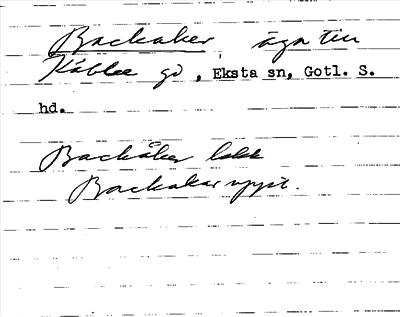 Backaker, äga till
Kåble gd, Eksta sn, Gotl. S.
hd.
Backåker lokk
Backakar uppt.